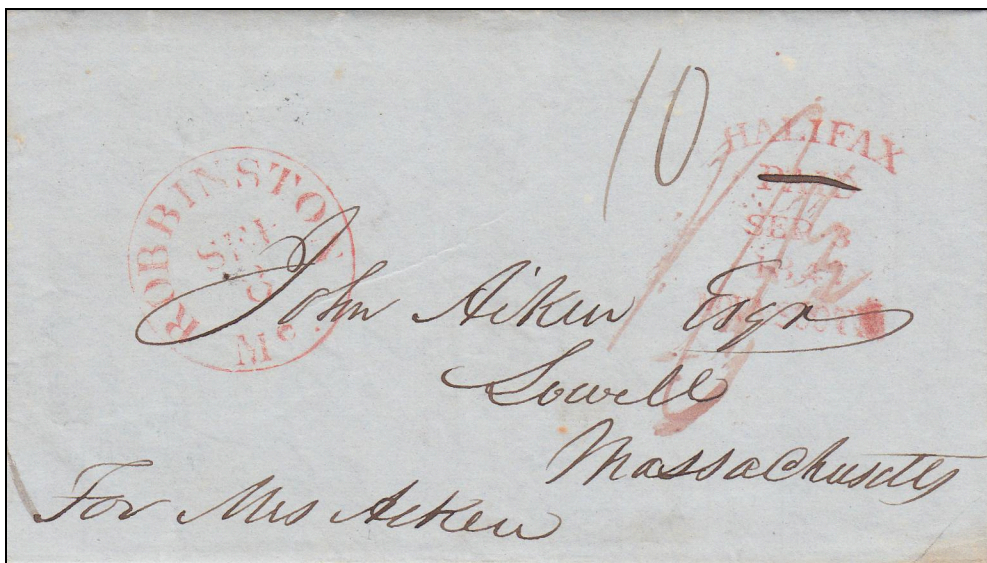 10
HALIFAX
PAID
SEP
ROBBINSTON
SEP
8
Me.
John Aiken Esqr
Lowell
Massachusetts
For Mrs Aiken